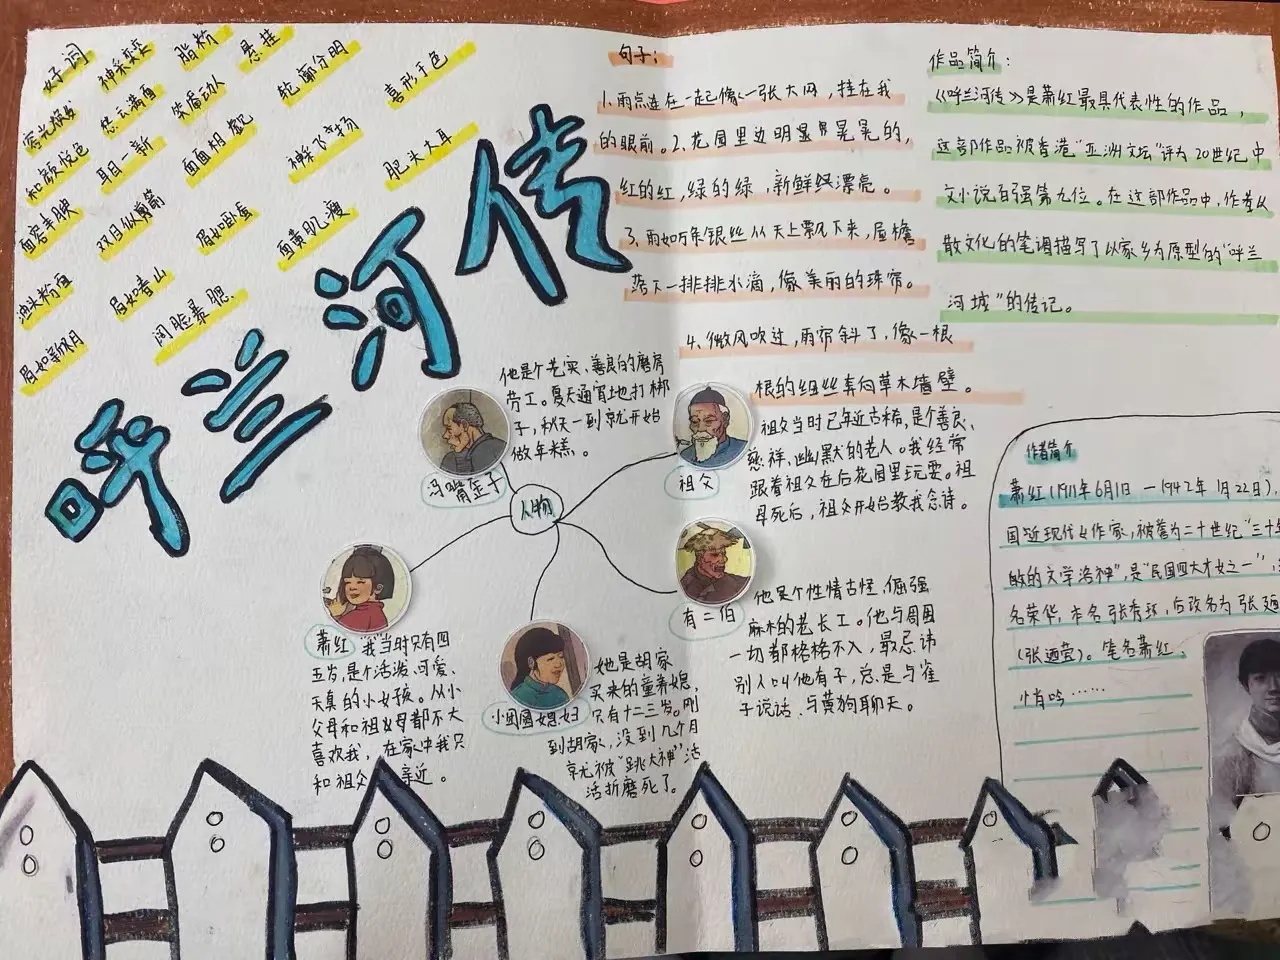 好词
神采奕奕
脂粉
悬挂
轮廓分明
喜形于色
容光焕发
愁云满面
笑靥动人
和颜悦色
耳目一新
面面相觑
神采飞扬
肥头大耳
面容丰腴
双目似剪箭
眉如卧蚕
面黄肌瘦
油头粉面
眉如春山
阔脸暴腮
眉如新月
呼兰河传
句子：
1、雨点连在一起像一张大网，挂在我
的眼前。2、花园里边明显晃晃的，
红的红，绿的绿，新鲜漂亮。
3、雨如万条银丝从天上飘下来，屋檐
落下一排排水滴，像美丽的珠帘。
4、微风吹过，雨帘斜了，像一根
根的细丝奔向草木墙壁。
作品简介：
《呼兰河传》是萧红最具代表性的作品，
这部作品被香港“亚洲文坛”评为20世纪中
文小说百强第九位。在这部作品中，作者以
散文化的笔调描写了以家乡为原型的“呼兰
河城”的传记。
人物
他是个老实、善良的磨房
劳工。夏天通宵地打梆
子，秋天一到就开始
做年糕。
冯嘴歪子
祖父
祖父当时已年近古稀，是个善良、
慈祥、幽默的老人。我经常
跟着祖父在后花园里玩耍。祖
母死后，祖父开始教我念诗。
有二伯
他是个性情古怪、倔强
麻木的老长工。他与周围
一切都格格不入，最忌讳
别人叫他有子，总是与雀
子说话、与黄狗聊天。
萧红
“我”当时只有四
五岁，是个活泼、可爱、
天真的小女孩。从小
父母和祖父母都不大
喜欢我，在家中我只
和祖父 亲近。
小团圆媳妇
她是胡家
买来的童养媳，
只有十二三岁。刚
到胡家，没到几个月
就被“跳大神”活
活折磨死了。
作者简介
萧红（1911年6月1日—1942年1月22日），
国近现代女作家，被誉为二十世纪“三十年
的文学洛神”，是“民国四大才女之一”，
名荣华，本名张秀环，后改名为张廼
（张廼莹）。笔名萧红、
悄吟……